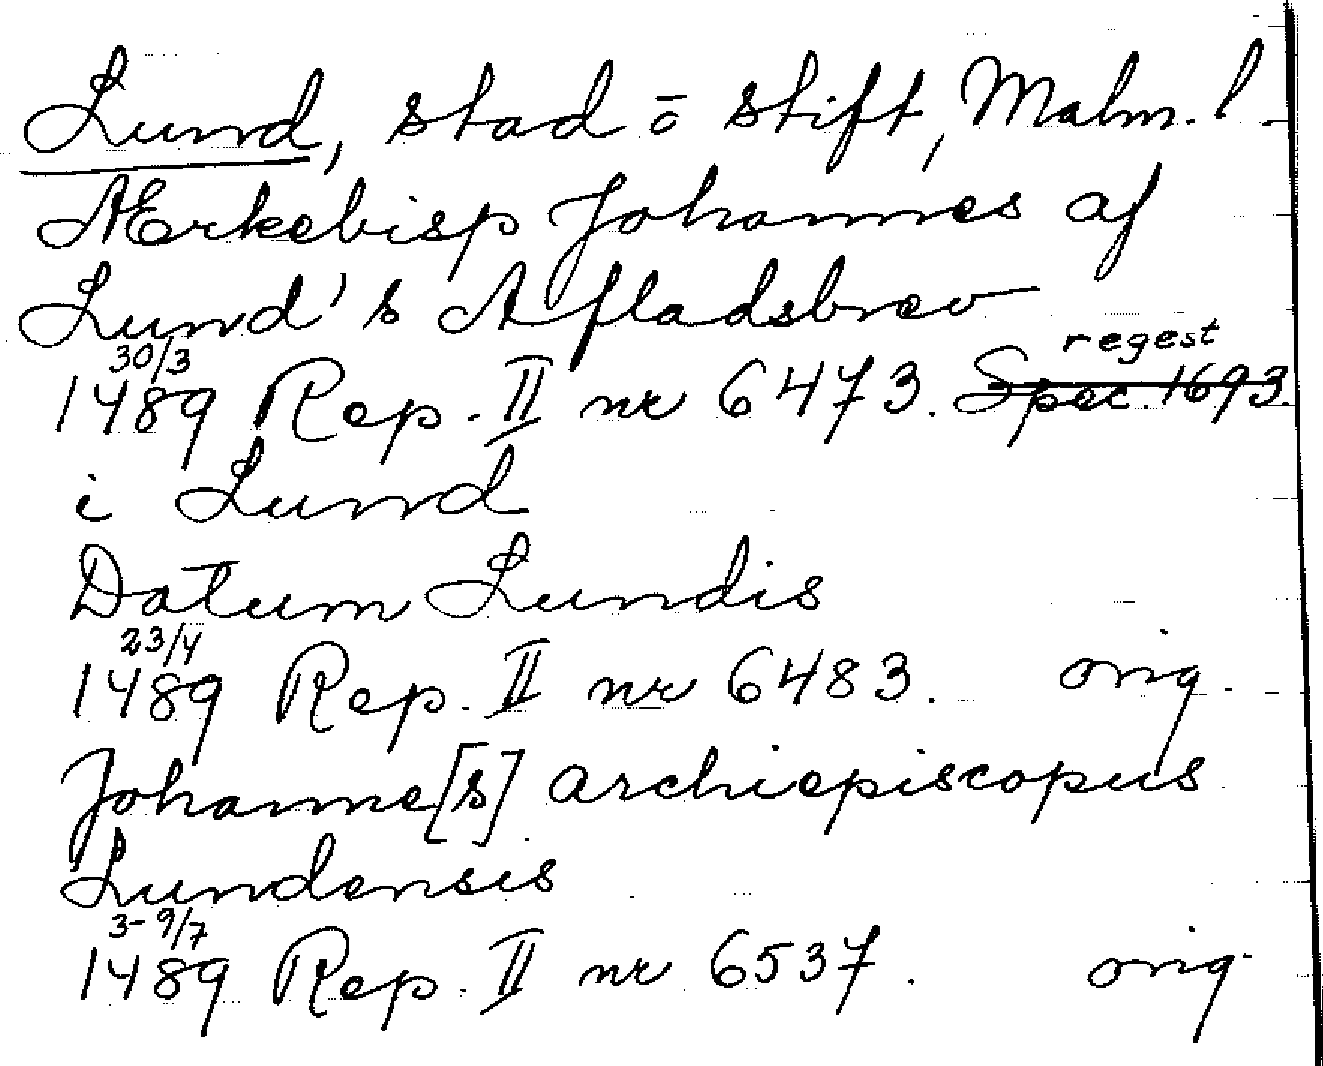 Lund, stad ō stift, Malm. l.
Ærkebisp Johannes af
Lund's Afladsbrev
30/3 regest
1489 Rep. II nr 6473. Spec. 1693.
i Lund
Datum Lundis
23/4
1489 Rep. II nr 6483. orig.
Johanne[s] archiepiscopus
Lundensis
3-9/7
1489 Rep. II nr 6537. orig.